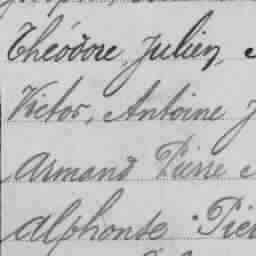 Théodore, Julien,
Victor, Antoine J
Armand Pierre
Alphonse Pier